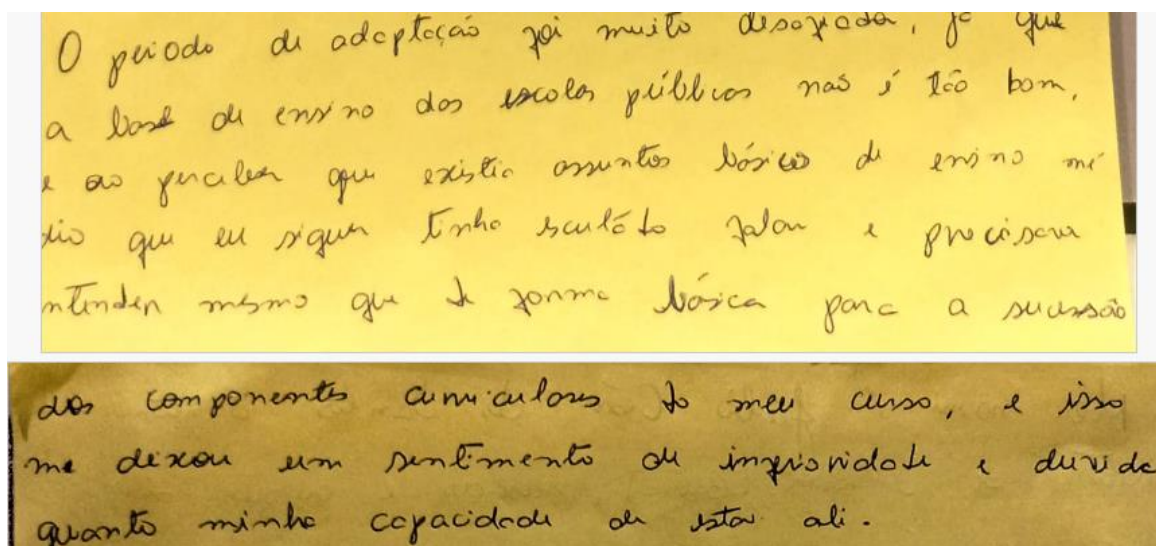 O periodo de adaptação foi muito desafiador, já que
a base de ensino das escolas públicas não é tão bom,
e ao perceber que existia assuntos básicos de ensino mé
dio que eu siquer tinha escutado falar e precisava
ntender mesmo que de forma básica para a sucessão
dos componentes curriculares do meu curso, e isso
me deixou um sentimento de inferioridade e duvida
quanto minha capacidade de estar ali.